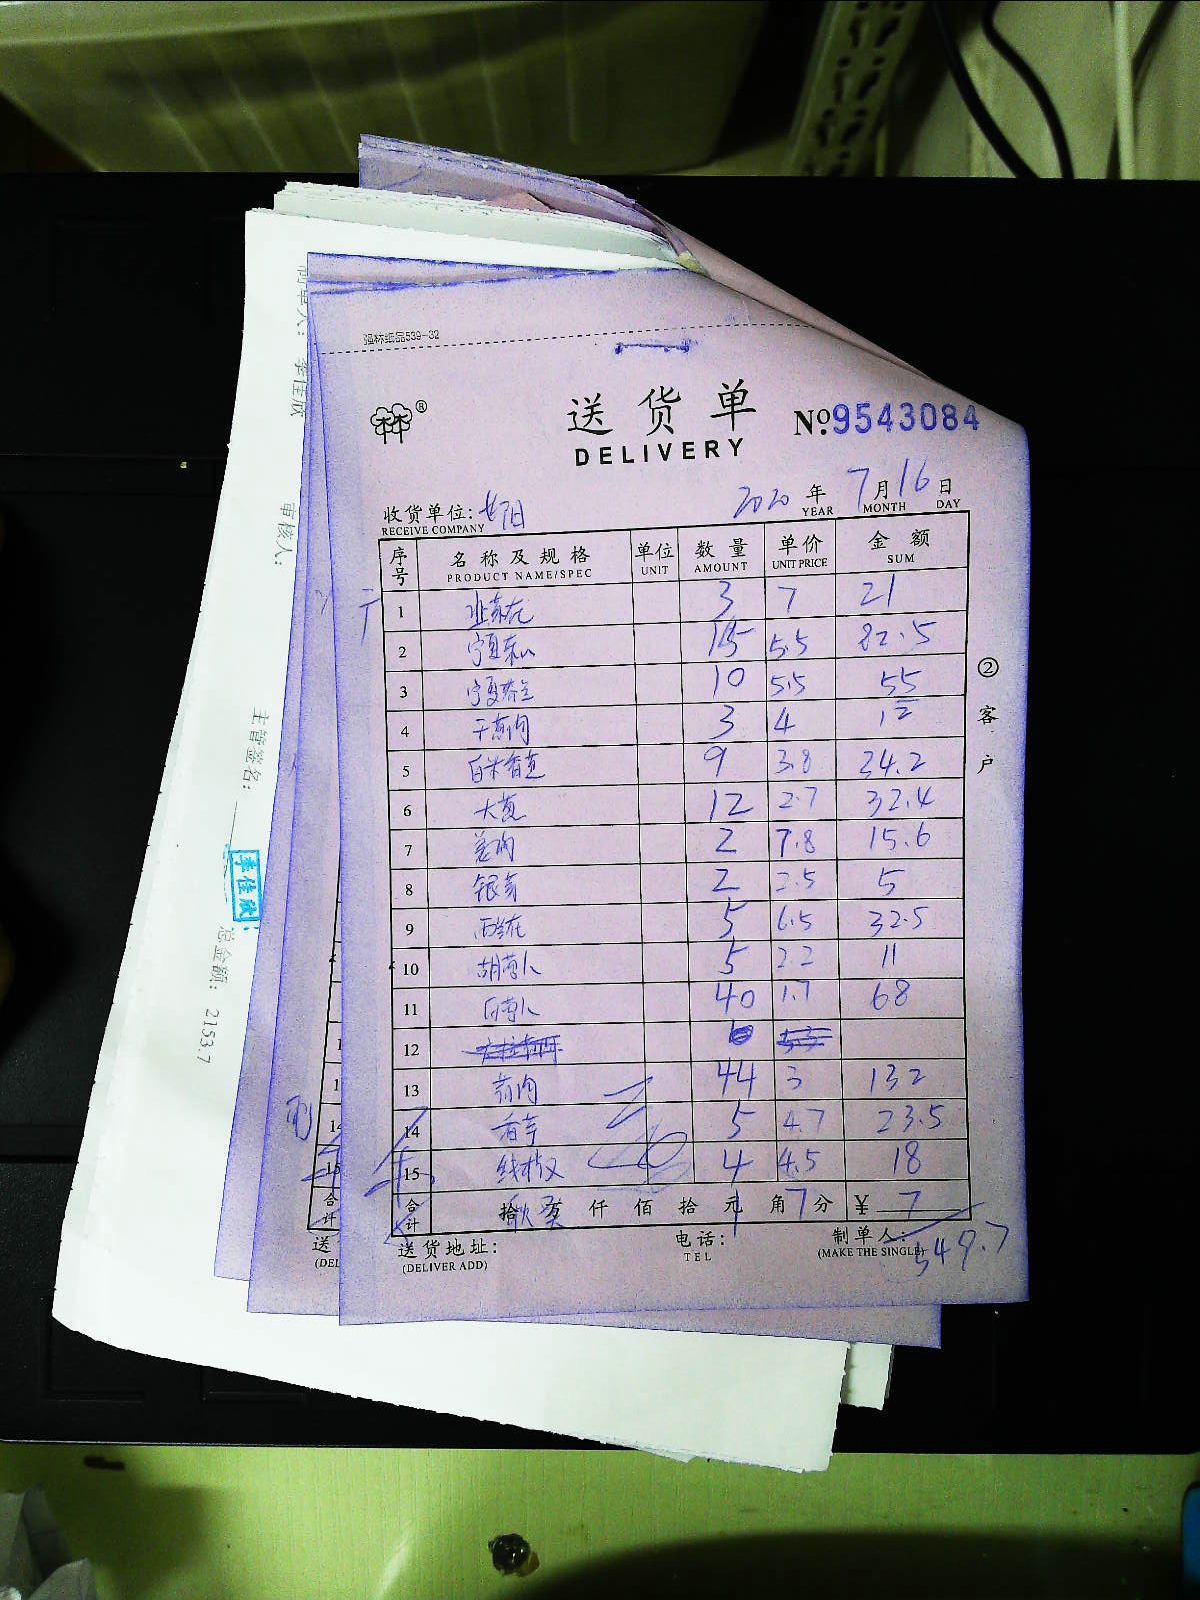 强林纸品539-32
送货单
DELIVERY
No.9543084
2020年7月16日
YEAR MONTH DAY
收货单位:
RECEIVE COMPANY
序号 名称及规格 单位 数量 单价 金额
PRODUCT NAME/SPEC UNIT AMOUNT UNIT PRICE SUM
1 3 7 21
2 宁夏菜心 15 5.5 82.5
3 宁夏芥兰 10 5.5 55
4 干葱肉 3 4 12
5 白米香葱 9 3.8 34.2
6 大葱 12 2.7 32.4
7 姜肉 2 7.8 15.6
8 银芽 2 2.5 5
9 西兰花 5 6.5 32.5
10 胡萝卜 5 2.2 11
11 白萝卜 40 1.7 68
12
13 青肉 44 3 132
14 香芋 5 4.7 23.5
15 线椒 4 4.5 18
合计 拾 万 仟 佰 拾 元 角 7 分 ¥ 7
549.7
送货地址:
(DELIVER ADD)
电话:
TEL
制单人:
(MAKE THE SINGLE)
②客户
制单人: 李佳欣
审核人:
主管签名:
李佳欣
总金额: 2153.7
14
15
合计
送
(DEL